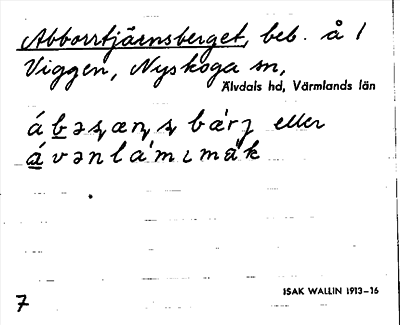 Abborrtjärnsberget, beb. å 1
Viggen, Nyskoga sn,
Älvdals hd, Värmlands län
eller
ISAK WALLIN 1913–16
7